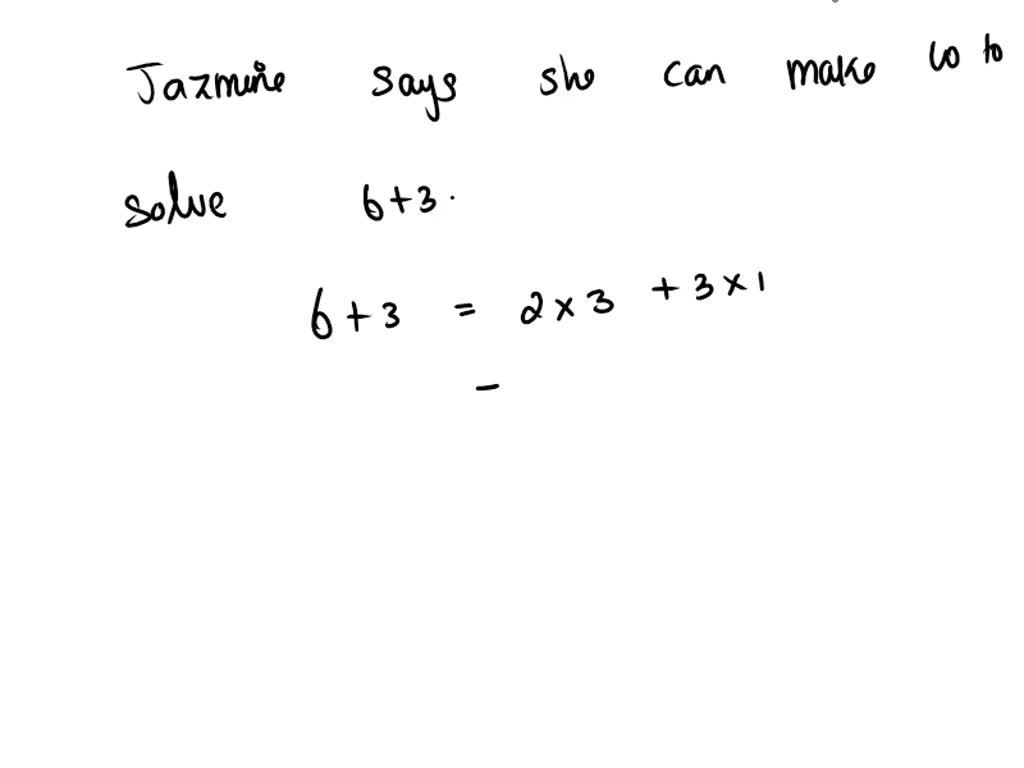 Jazmine says she can make 10 to
solve 6+3.
6+3 = 2×3 +3×1
–